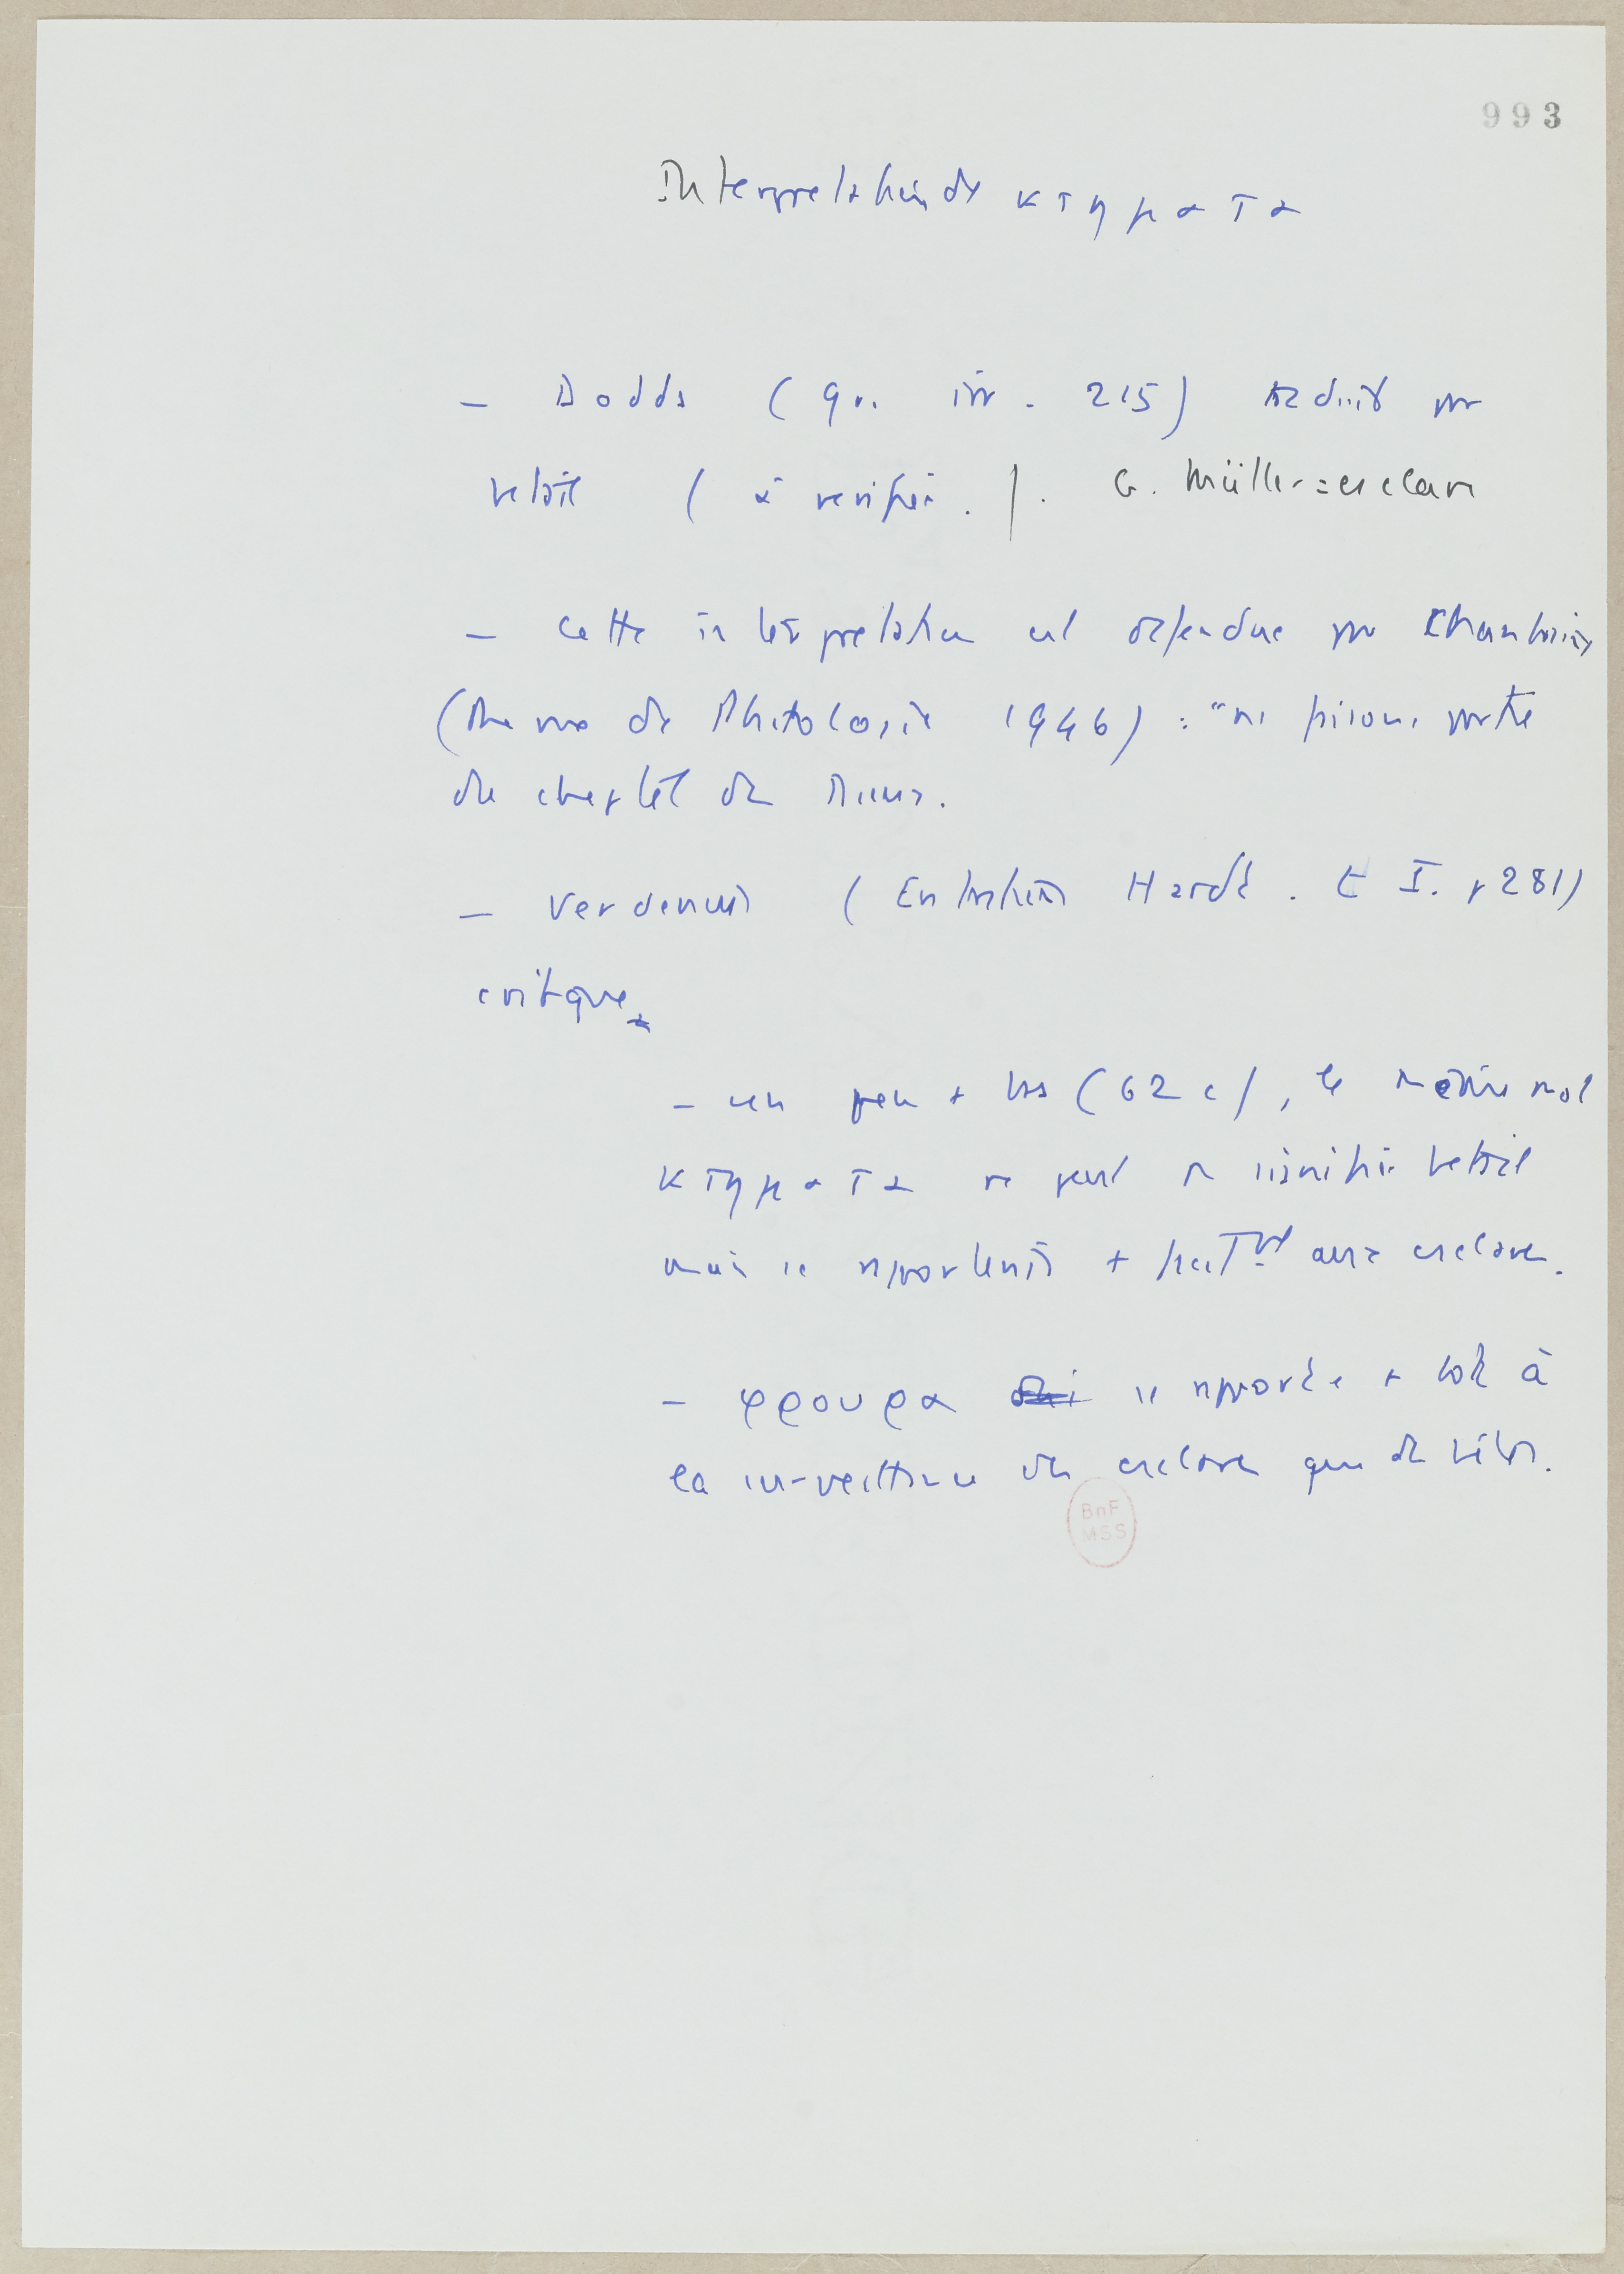 993
Interpretation de κτηματα
– Dodds (Gr. irr. 215) traduit par
bétail (à vérifier.). G. Müller = esclave
– Cette interprétation est défendue par
(Revue de Philologie 1946) : "ns faisons partie
du cheptel des Dieux.
– Verdenius (Entretiens Hardt. t I. p 281)
critique
– un peu + bas (62 c), le même mot
κτηματα ne peut pas signifier bétail
mais se rapporterait + aux esclaves.
– φρουρα se rapporte + tôt à
la surveillance des esclaves que de bétail.
BnF
MSS